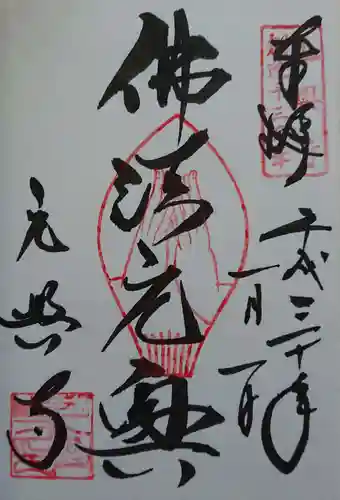 奉拝
平成三十年
一月一日
佛法元興
元興寺